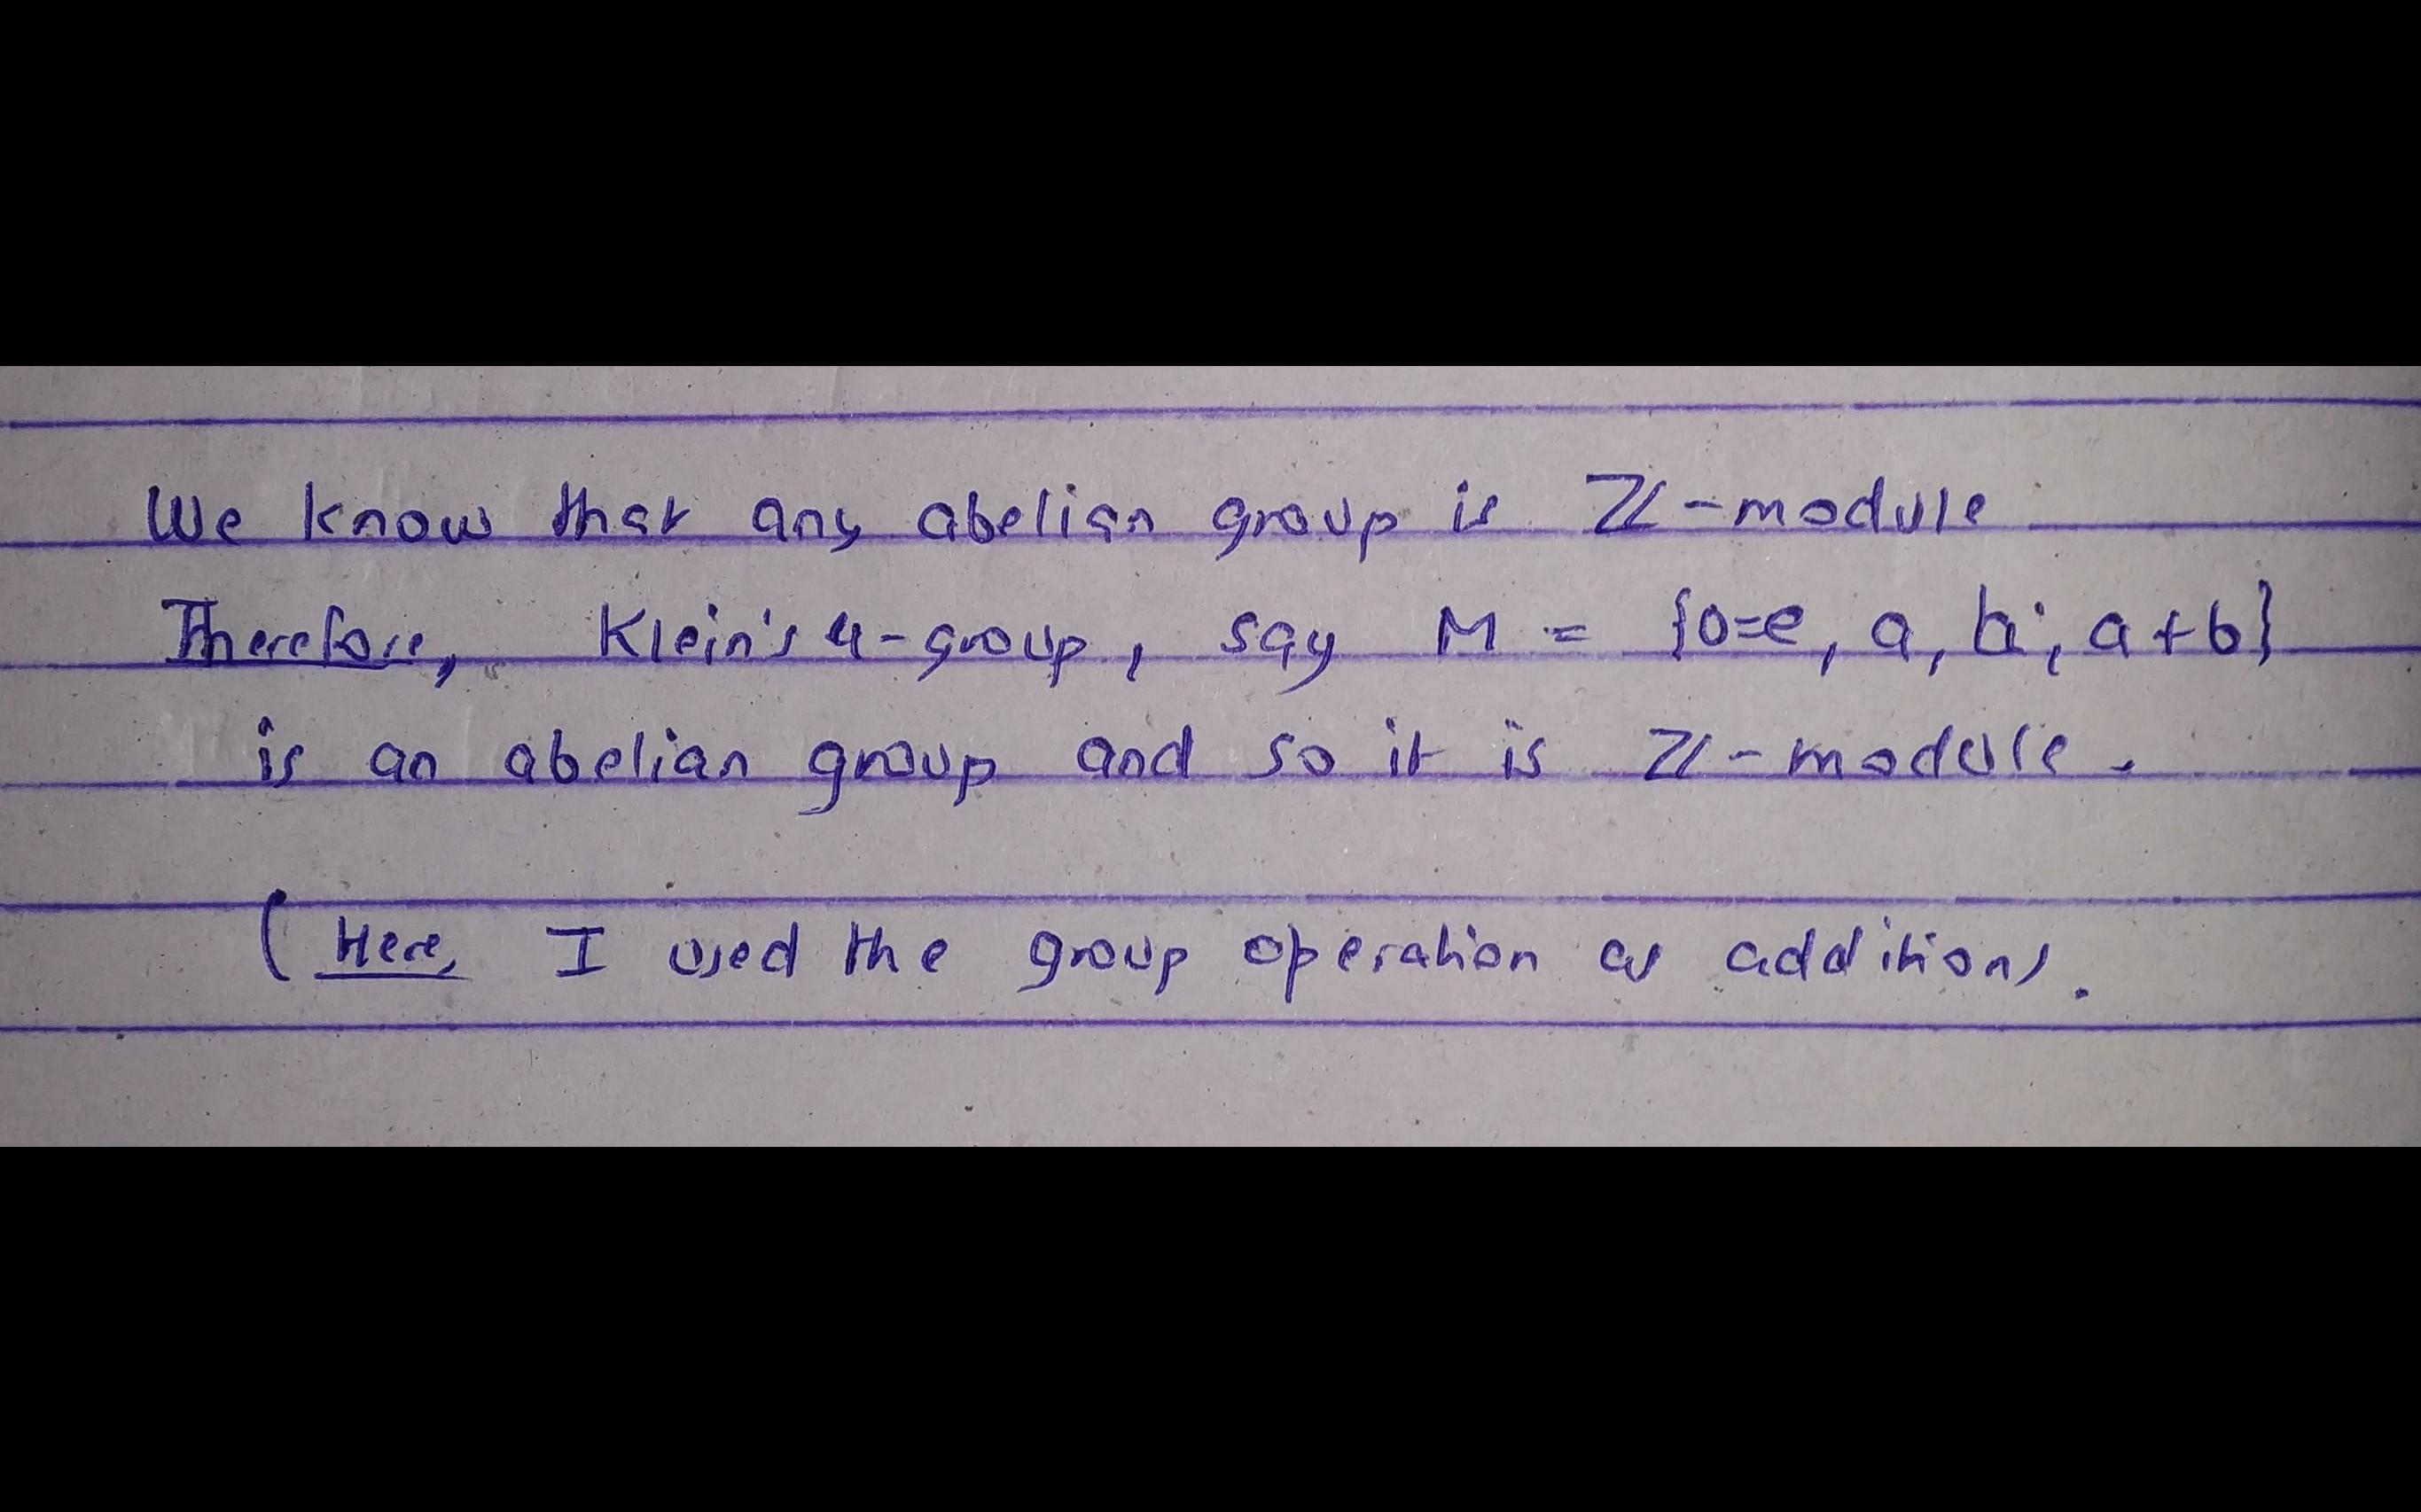 We know that any abelian group is ℤ-module
Therefore, Klein's 4-group, say M = {0=e, a, b, a+b}
is an abelian group and so it is ℤ-module.
(Here, I used the group operation as addition).